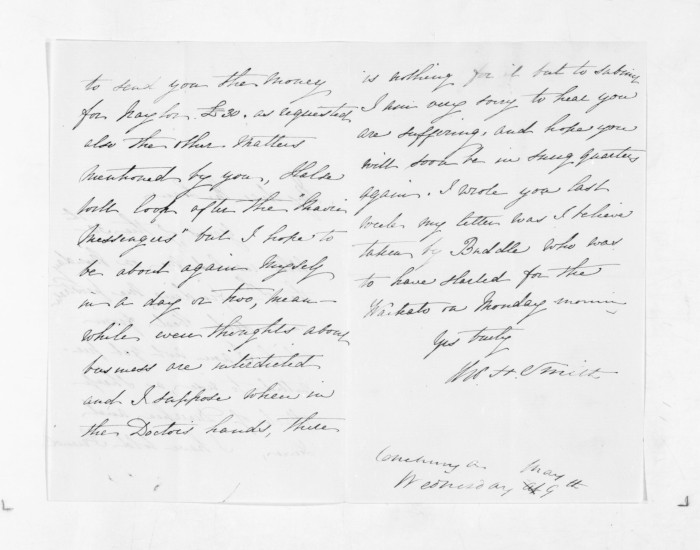 to send you the money
for Naylor £30. as requested
also the other matters
mentioned by you, Halse
will look after the "Maori
Messengers" but I hope to
be about again myself
in a day or two, mean-
while even thoughts about
business are interdicted
and I suppose when in
the Doctors hands, there
is nothing for it but to submit
I am very sorry to hear you
are suffering, and hope you
will soon be in snug quarters
again. I wrote you last
week my letter was I believe
taken by Buddle who was
to have started for the
Waikato on Monday morning
Yrs truly
W. H. Smith
May
Wednesday 9th